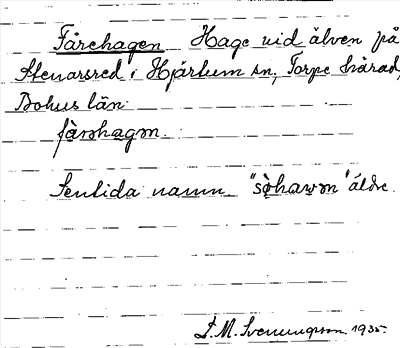 Fårehagen Hage vid älven på
Stenarsred i Hjärtum sn, Torpe härad,
Bohus län.
fà̀rəhagən.
Sentida namn. "sø̀hawən" äldre.
S. M. Svenungsson 1935.